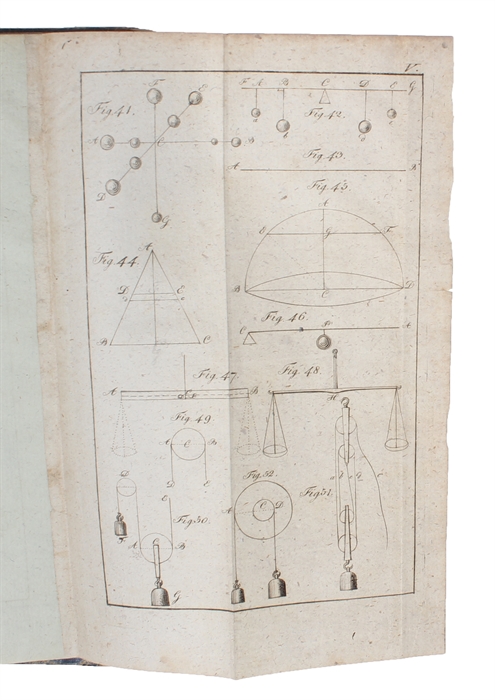 V.
F
E
Fig. 41.
A C B
D
G
F A B C D E G
a b d e
Fig. 42.
Fig. 43.
A B
Fig. 45.
A
E G F
B C D
Fig. 44.
A
D E
B C
Fig. 46.
C A
Fig. 47.
A B
Fig. 48.
Fig. 49.
A C B
D E
H
Fig. 52.
A C D
Fig. 51.
D
F
E
Fig. 50.
A C B
G